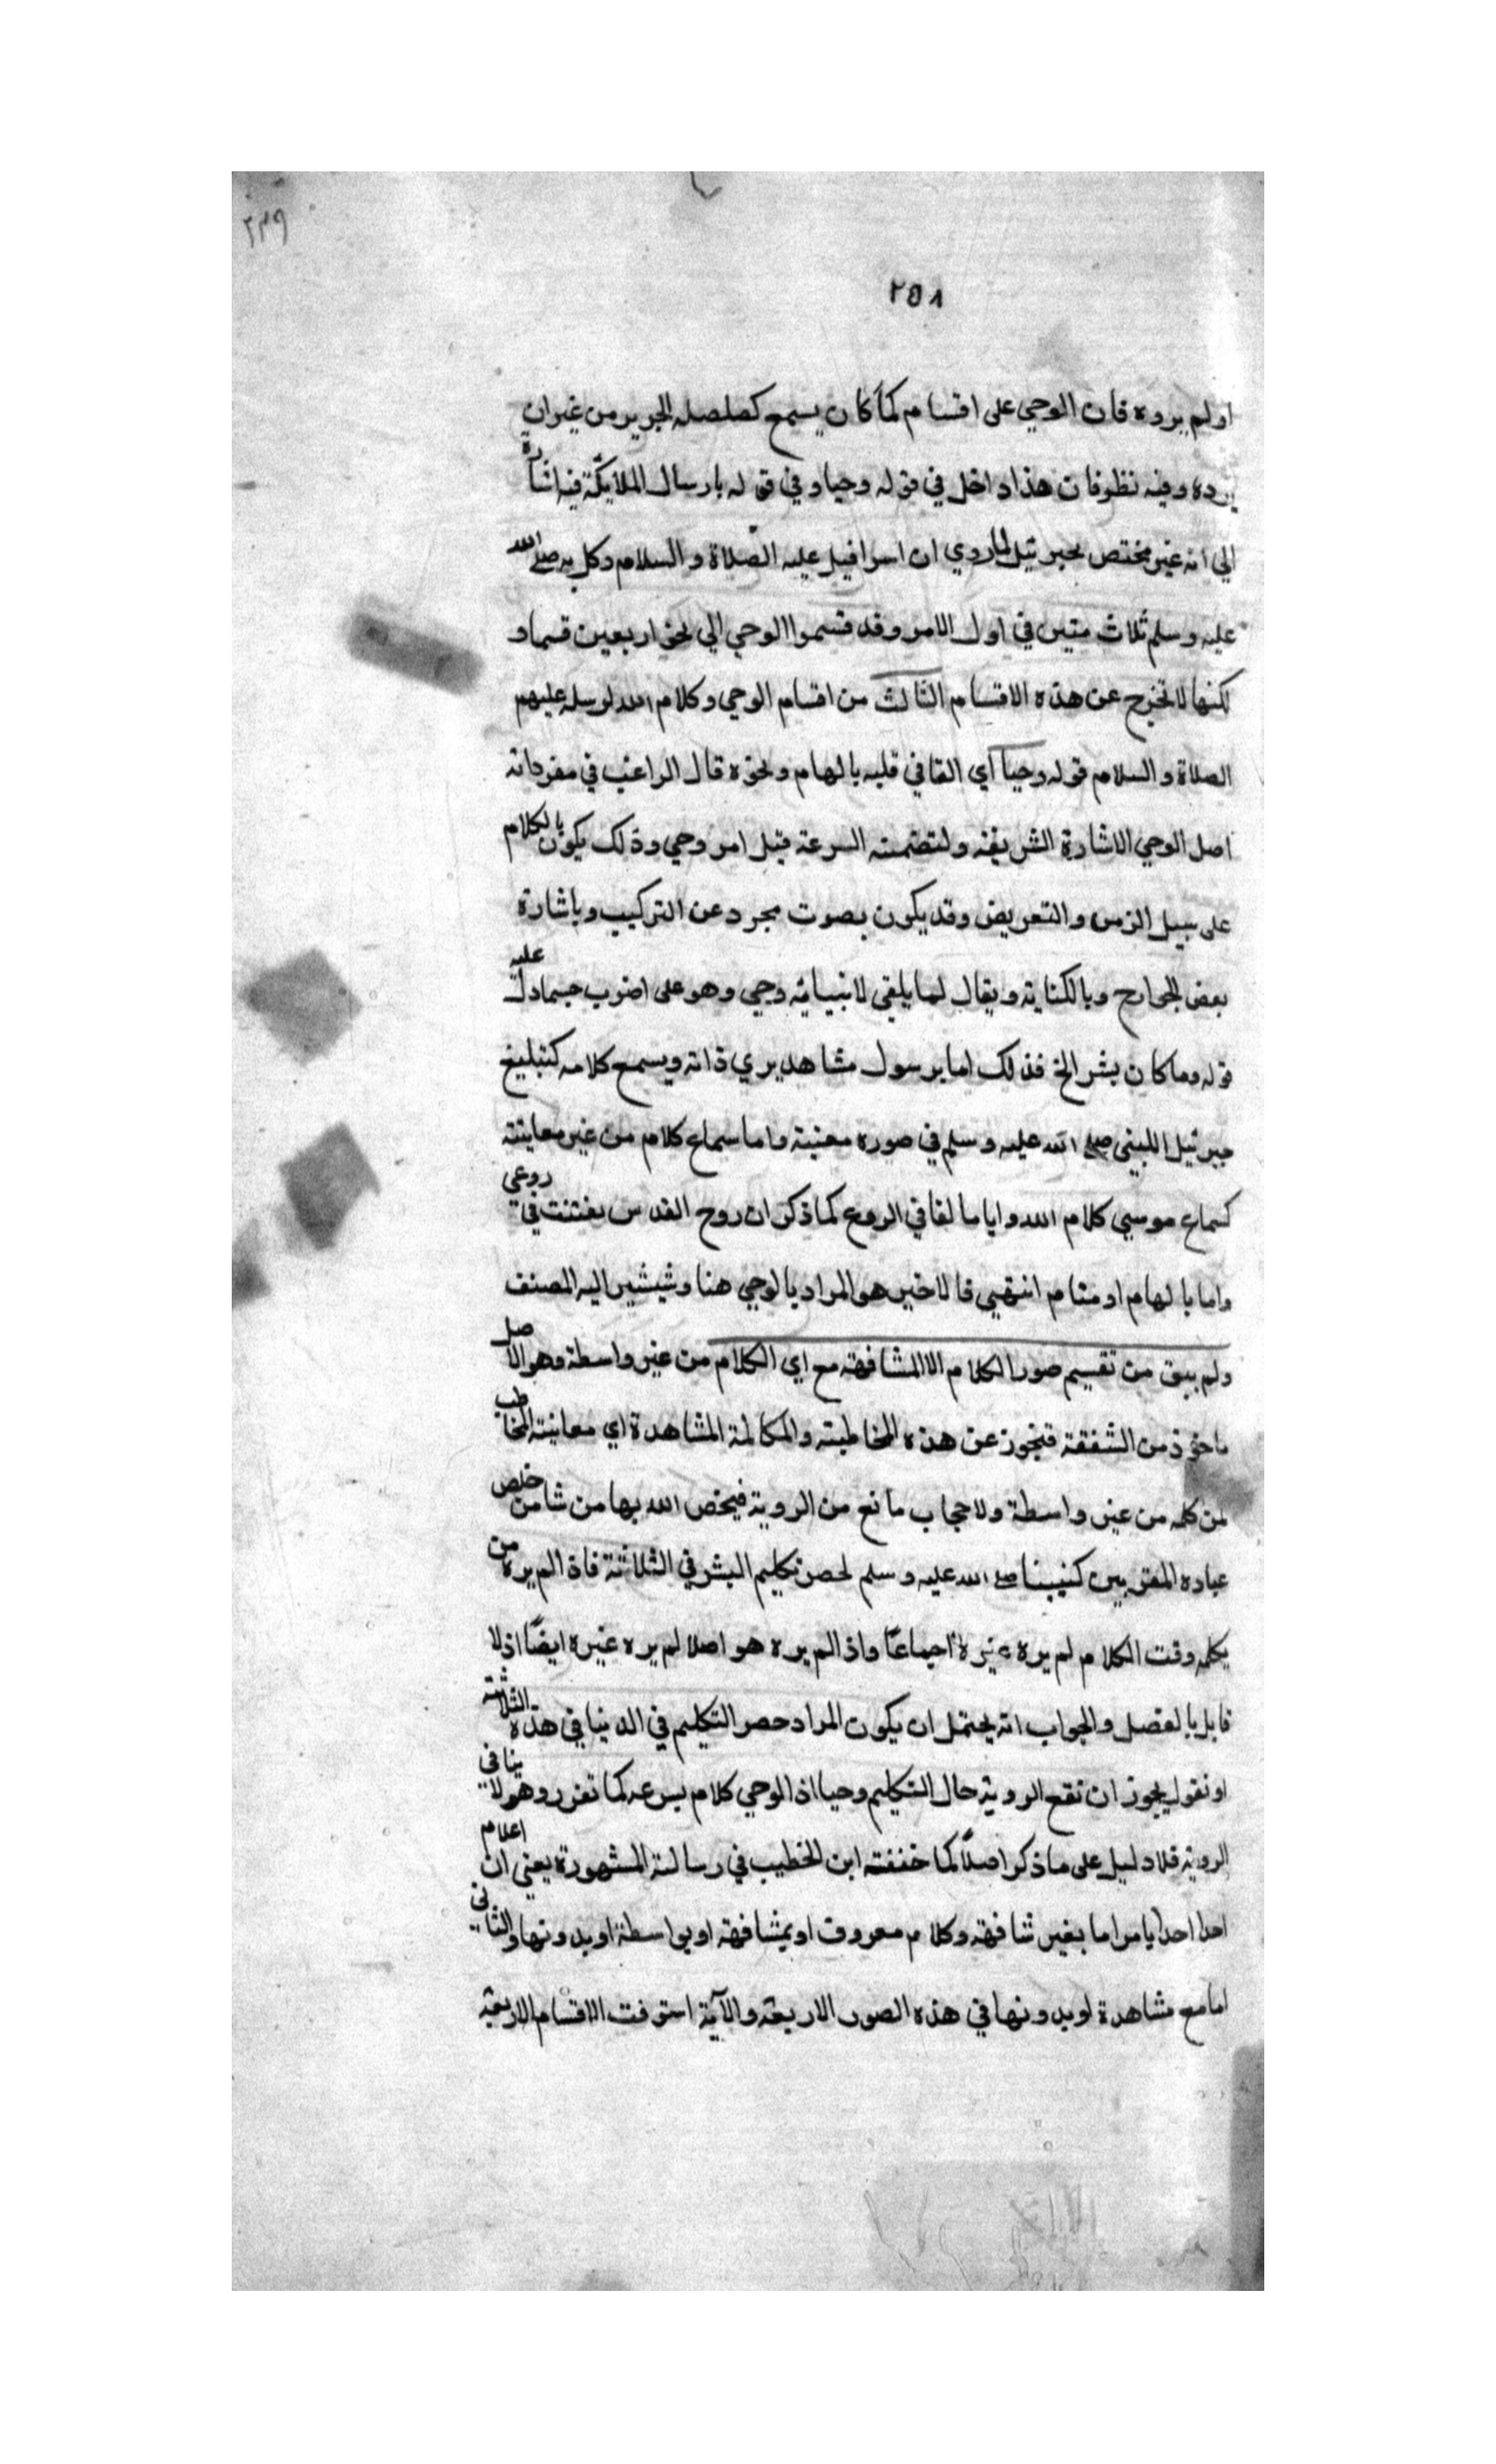 ٢٣٩
٢٥٨
اولم يروه فان الوحي على اقسام كما كان يسمع كصلصله الجرير من غيران
يرده وفيه نظرفان هذا داخل في قوله وحيا وفي قوله بارسال الملايكة فيه اشارة
الي انه غير مختص بجبرئيل لماروي ان اسرافيل عليه الصلاة والسلام وكل به صلى الله
عليه وسلم ثلاث سنين في اول الامر وقد قسموا الوحي الي نحو اربعين قسما و
لكنها لا تخرج عن هذه الاقسام الثالث من اقسام الوحي وكلام الله لرسله عليهم
الصلاة والسلام قوله وحيا اي القا في قلبه بالهام ونحوه قال الراغب في مفرداته
اصل الوحي الاشارة الشريفة ولتضمنه السرعة قيل امر وحي وذلك يكون بالكلام
على سبيل الرمز والتعريض وقد يكون بصوت مجرد عن التركيب وباشارة
بعض الجوارح وبالكناية ويقال لما يلقى لانبيائه وحي وهو على اضرب حسما دل عليه
قوله وما كان بشر الخ فذلك اما برسول مشاهد يري ذاته ويسمع كلامه كتبليغ
جبرئيل للبني صلى الله عليه وسلم في صورة معنية واما سماع كلام من غير معاينته
كسماع موسي كلام الله واياما لقا في الروع كما ذكر ان روح القدس نفثت في روعي
واما بالهام او منام انتهيي فالاخير هو المراد بالوحي هنا وشيشير اليه المصنف
ولم يبق من تقسيم صور الكلام الا المشافهة مع اي الكلام من غير واسطة وهو الاصل
ماخوذ من الشفقة فتجوز عن هذه المخاطبته والمكالمة المشاهدة اي معاينة المخاطب
لمن كلمه من غير واسطة ولا حجاب مانع من الروية فيخص الله بها من شا من خلص
عباده المقربين كنبينا صلى الله عليه وسلم لحصر تكليم البشر في الثلاثة فاذ الم يره من
يكلمه وقت الكلام لم يره غيره اجماعًا واذ الم يره هو اصلا لم يره غيره ايضًا اذ لا
قايل بالفصل والجواب انه يحتمل ان يكون المراد حصر التكليم في الدنيا في هذه الثلاثة
او نقول يجوز ان تقع الروية حال التكليم وحيا اذ الوحي كلام بسرعه كما تقرر وهو لا ينافى
الروية فلا دليل على ما ذكر اصلًا كما حققته ابن الخطيب في رسالته المشهورة يعني ان اعلام
احدا احدا يامر اما بغير شافهة وكلام معروف او بمشافهة او بواسطة او بدونها والثاني
اما مع مشاهدة او بدونها في هذه الصور الاربعة والآية استوفت الاقسام الاربعة